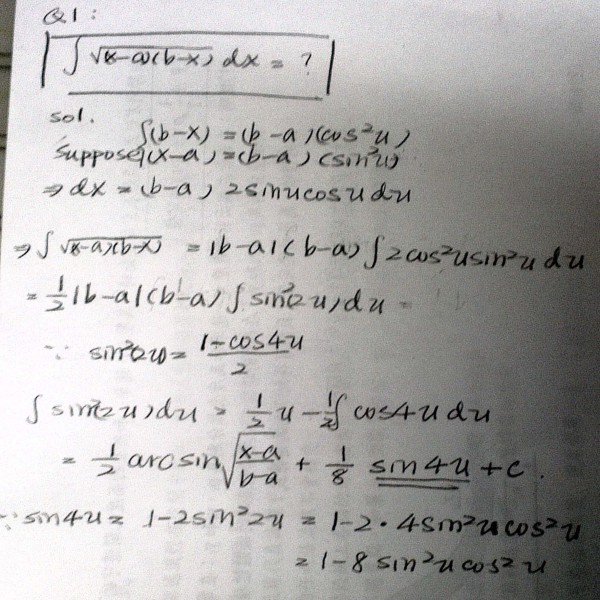 Q1:
∫√(x-a)(b-x) dx = ?
sol.
suppose {(b-x) = (b-a)(cos²u)
(x-a) = (b-a)(sin²u)
⇒ dx = (b-a) 2sinucosu du
⇒ ∫√(x-a)(b-x) = |b-a|(b-a) ∫2cos²usin²u du
= 1/2 |b-a|(b-a) ∫sin²(2u)du =
∵ sin²(2u) = (1-cos4u)/2
∫sin²(2u)du = 1/2 u - 1/2 ∫cos4u du
= 1/2 arcsin√((x-a)/(b-a)) + 1/8 sin4u + c.
∵ sin4u = 1-2sin²2u = 1-2·4sin²ucos²u
= 1-8sin²ucos²u